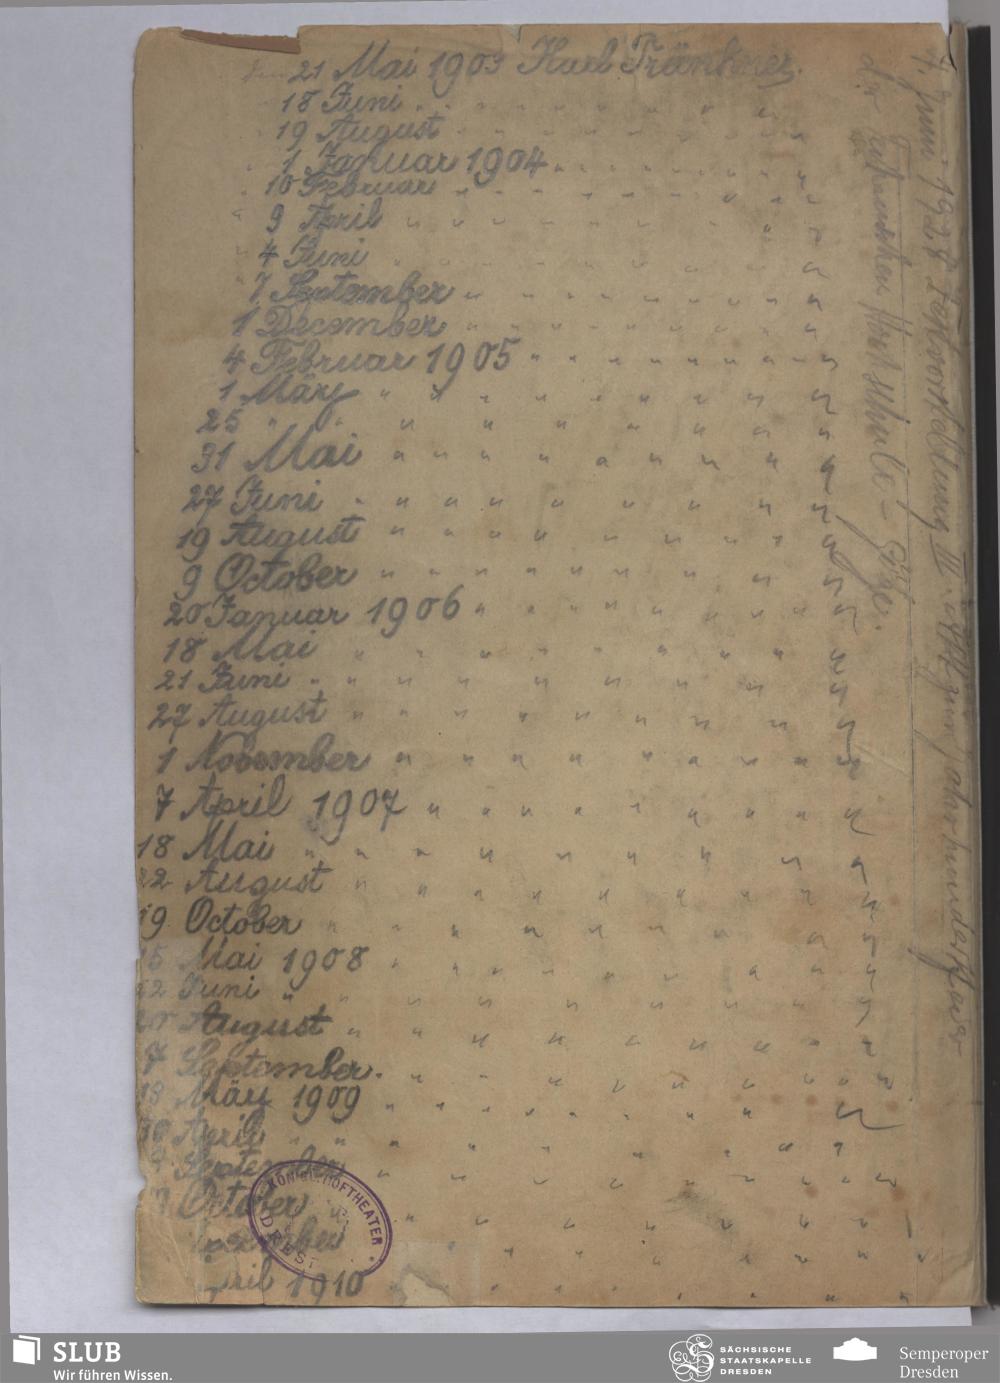 21 Mai 1903 Karl Tränkner.
18 Juni " " " " " " "
19 August " " " " " " "
1 Januar 1904 " " " " " " "
10 Februar " " " " " " "
9 April " " " " " " "
4 Juni " " " " " " "
7 September " " " " " " "
1 December " " " " " " "
4 Februar 1905 " " " " " " "
1 März " " " " " " "
25 " " " " " " "
31 Mai " " " " " " "
27 Juni " " " " " " "
19 August " " " " " " "
9 October " " " " " " "
20 Januar 1906 " " " " " " "
18 Mai " " " " " " "
21 Juni " " " " " " "
27 August " " " " " " "
1 Nobember " " " " " " "
7 April 1907 " " " " " " "
18 Mai " " " " " " "
22 August " " " " " " "
19 October " " " " " " "
15 Mai 1908 " " " " " " "
22 Juni " " " " " " "
August " " " " " " "
7 September. " " " " " " "
18 März 1909 " " " " " " "
30 April " " " " " " "
September " " " " " " "
October " " " " " " "
April 1910 " " " " " "
4. Juni 1928 Festvorstellung III. zum Jahrhundertfeier
der technischen Hochschule -
KÖNIGL. HOFTHEATER
DRESD
SLUB
Wir führen Wissen.
SÄCHSISCHE
STAATSKAPELLE
DRESDEN
Semperoper
Dresden